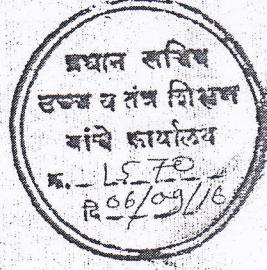 प्रधान सचिव
उच्च व तंत्र शिक्षण
यांचे कार्यालय
क्र.
दि 06/09/16